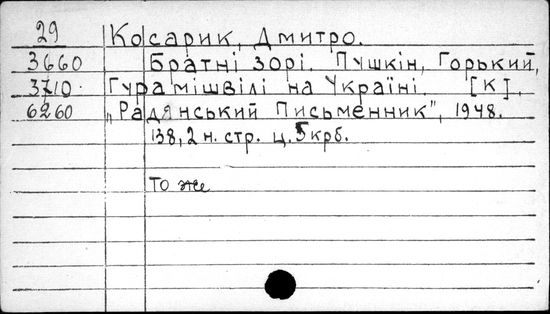 29 Косарик, Дмитро.
3660 Братні зорі. Пушкін, Горький,
3710. Гурамішвілі на Україні. [К].,
6260 „Радянський Письменник", 1948.
138, 2 н. стр. ц. 5 крб.
То же